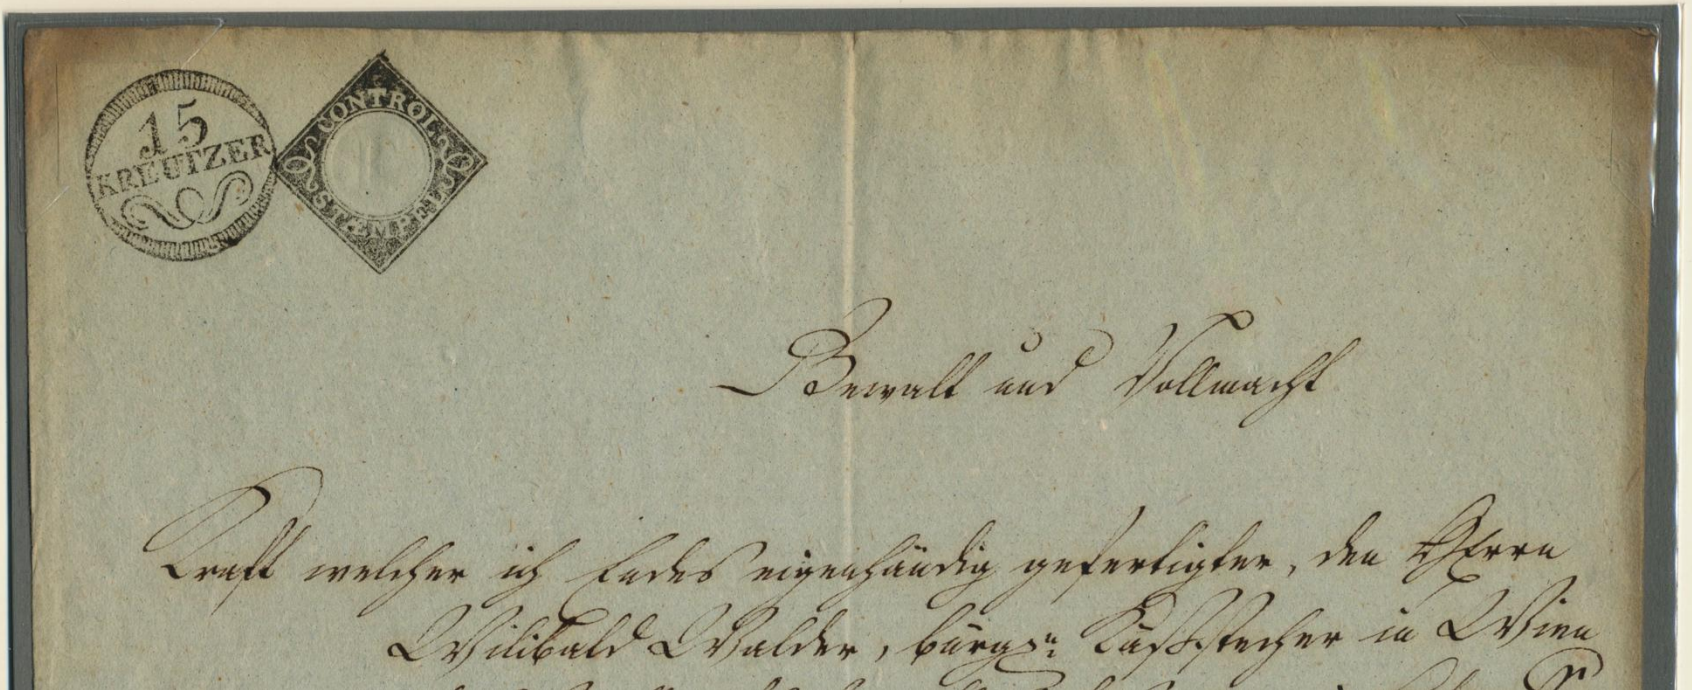 15
KREUTZER
CONTROL
STEMPEL
Gewalt und Vollmacht
Kraft welcher ich Endes eigenhändig gefertigter, den Herrn
Wilibald Walder, bürgl: Käßstecher in Wien